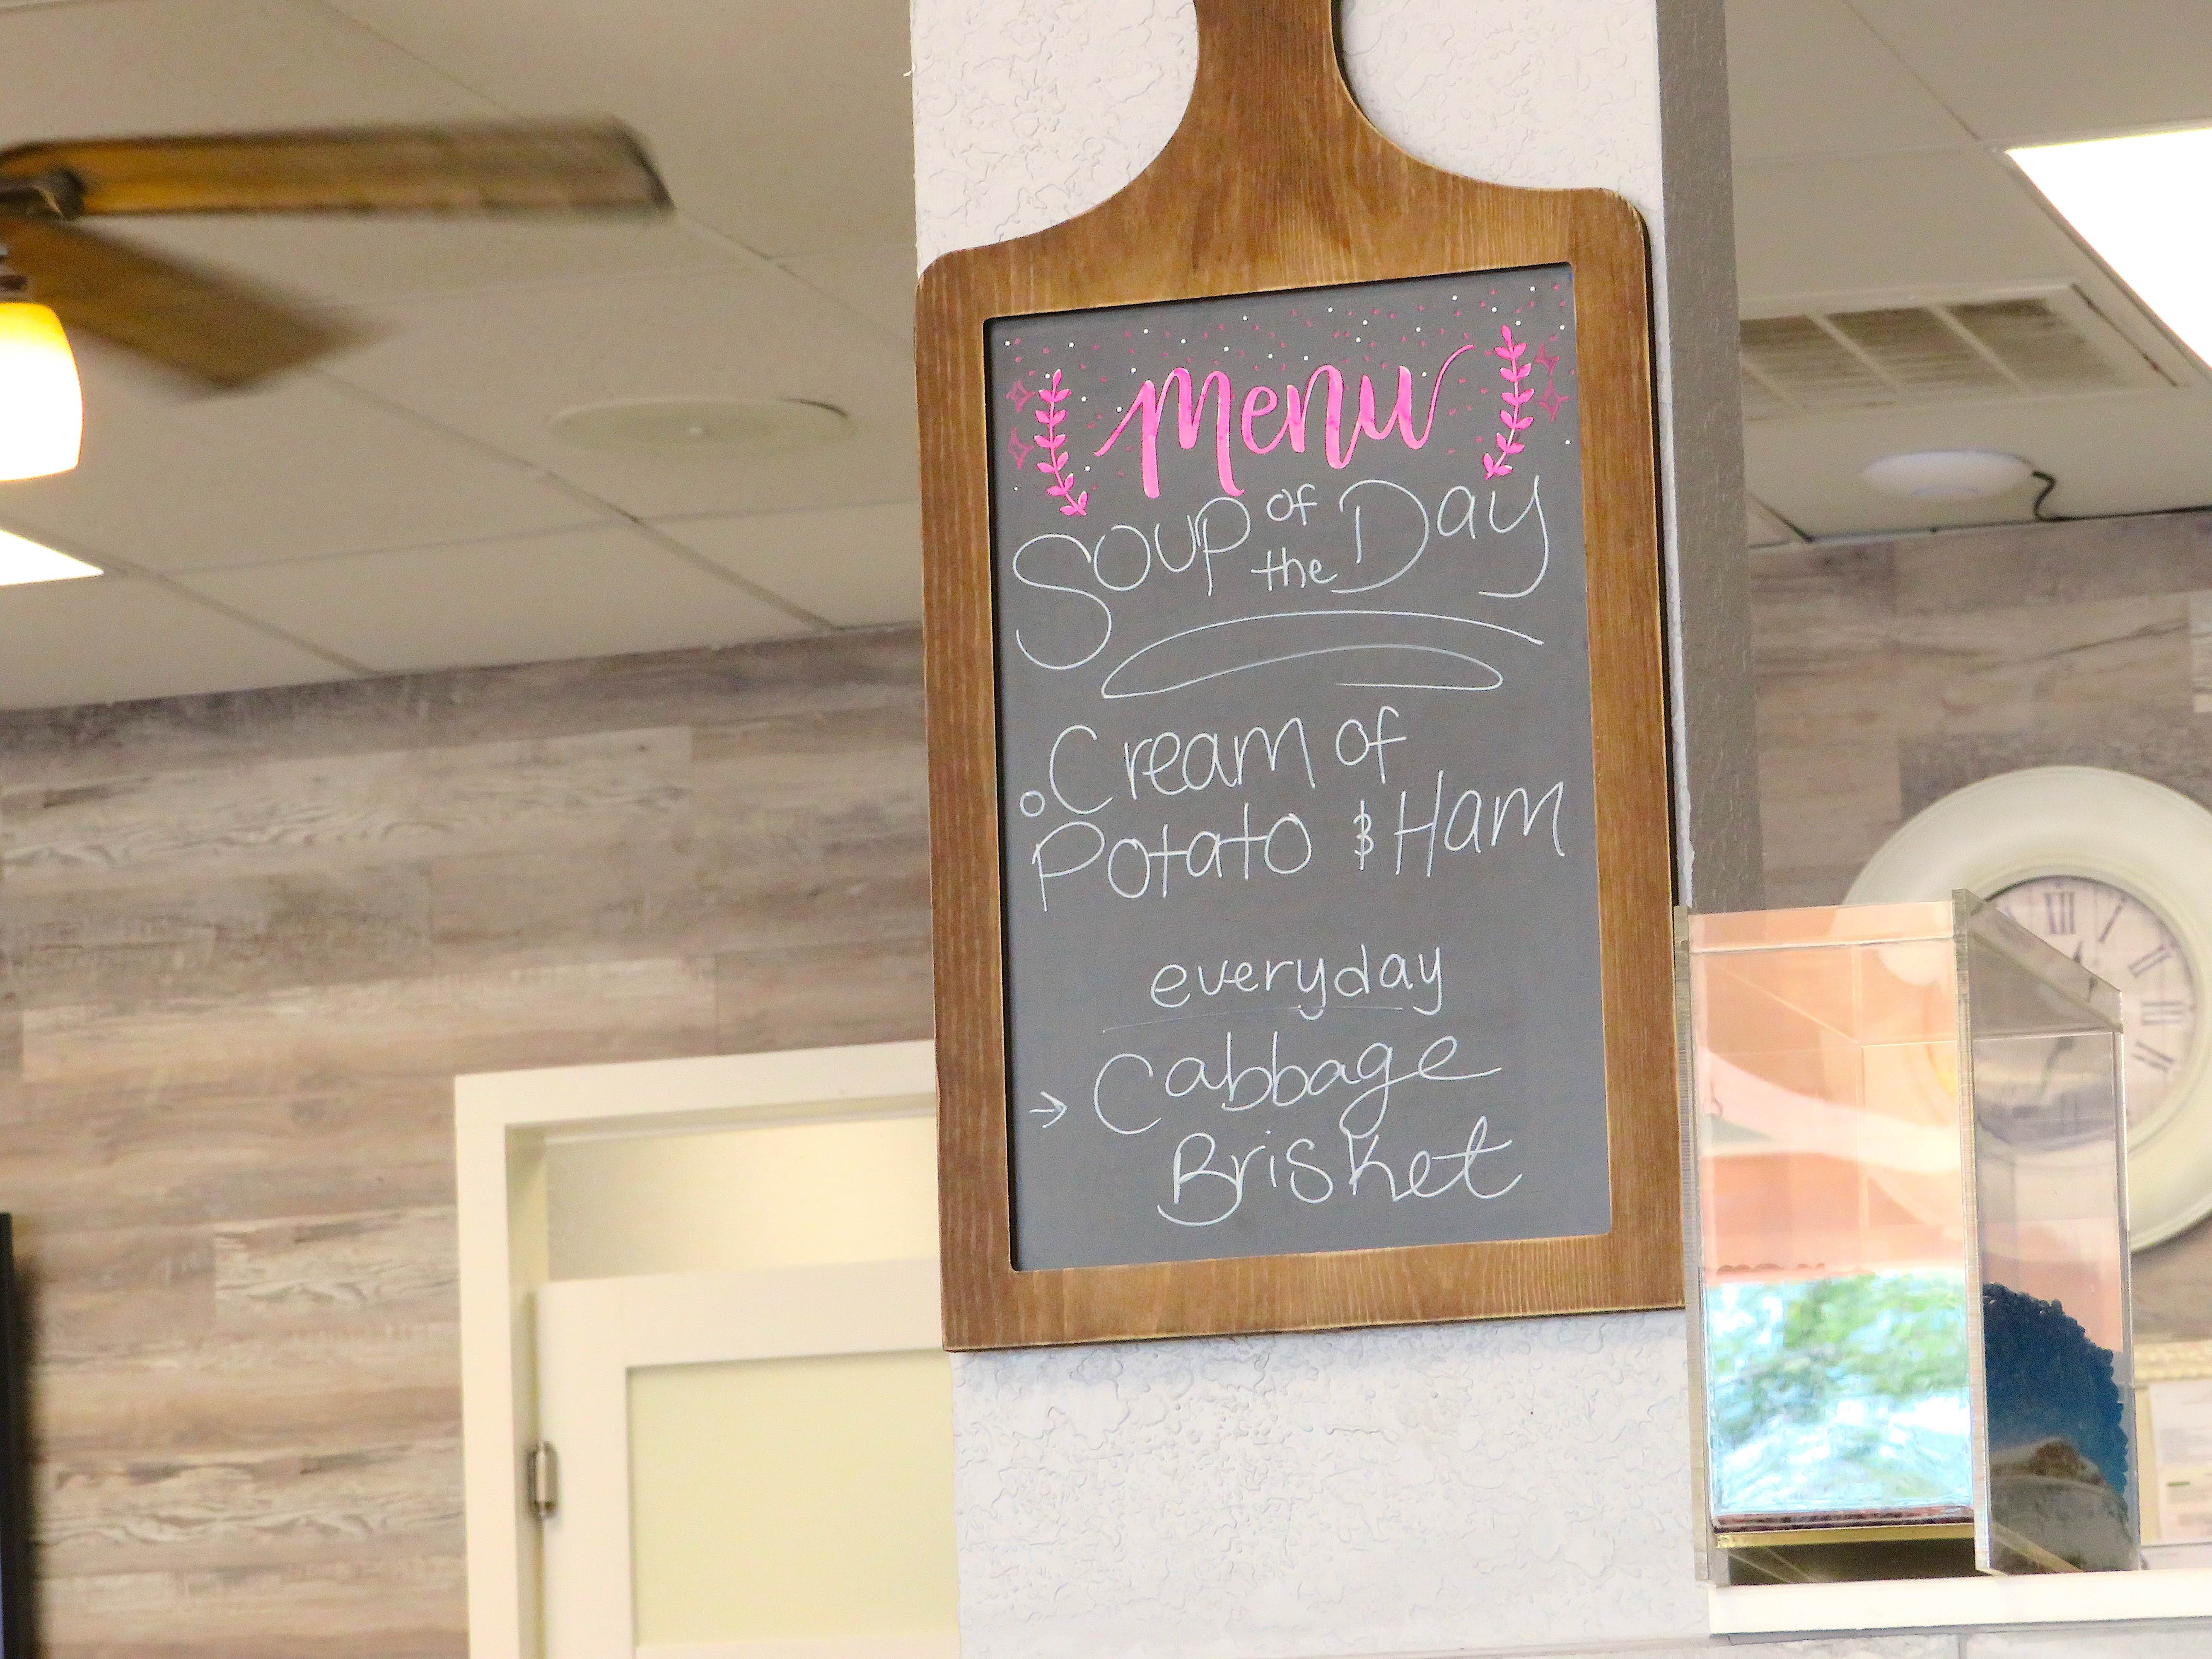 Menu
Soup of the Day
Cream of
Potato & Ham
everyday
→ Cabbage
Brisket
XII
I
II
III
IIII